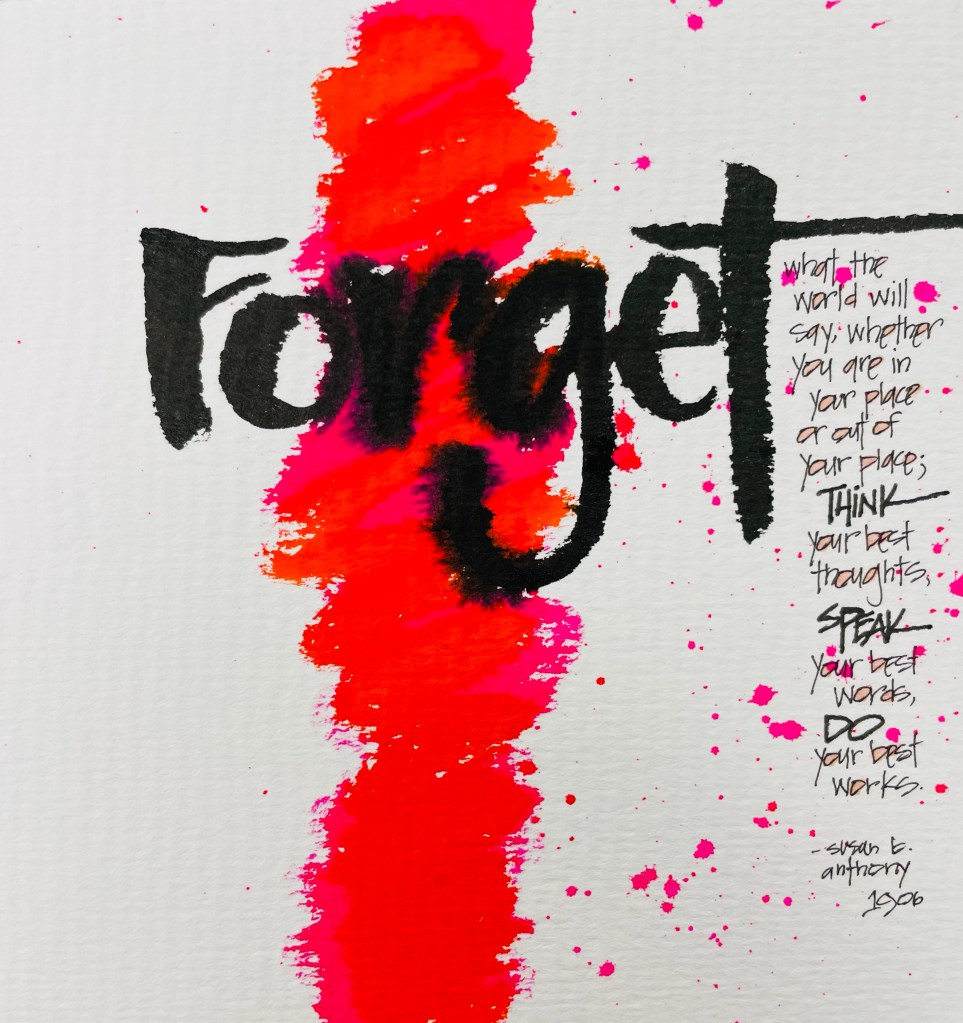 Forget
what the
world will
say, whether
you are in
your place
or out of
your place;
THINK
your best
thoughts,
SPEAK
your best
words,
DO
your best
works.
- susan b.
anthony
1906